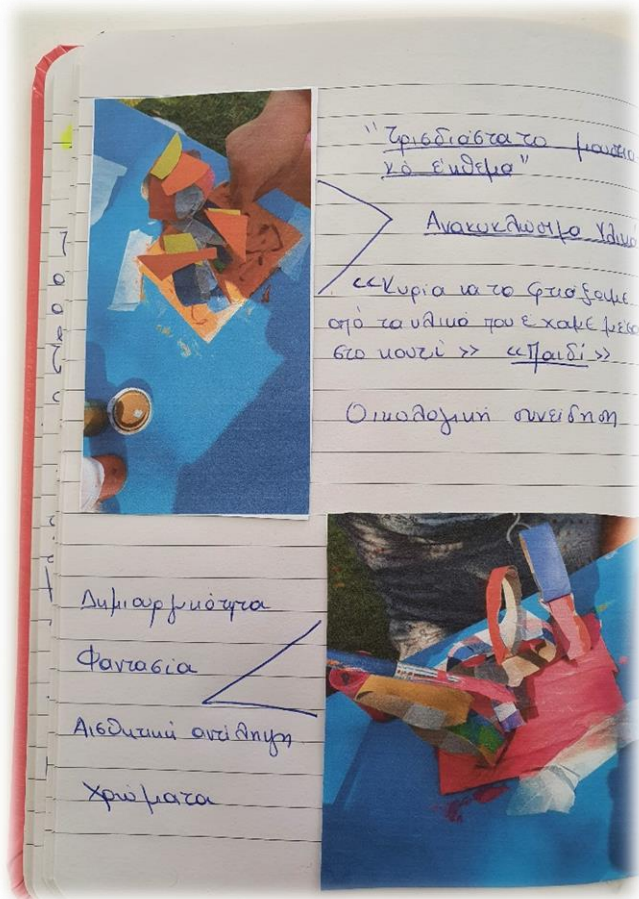 "Τρισδιάστατο μουσεια
κό έκθεμα"
Ανακυκλώσιμα Υλικά
<<Κυρία να το φτιάξαμε
από τα υλικά που είχαμε μέσα
στο κουτί >> <<Παιδί>>
Οικολογική συνείδηση
Δημιουργικότητα
Φαντασία
Αισθητική αντίληψη
Χρώματα